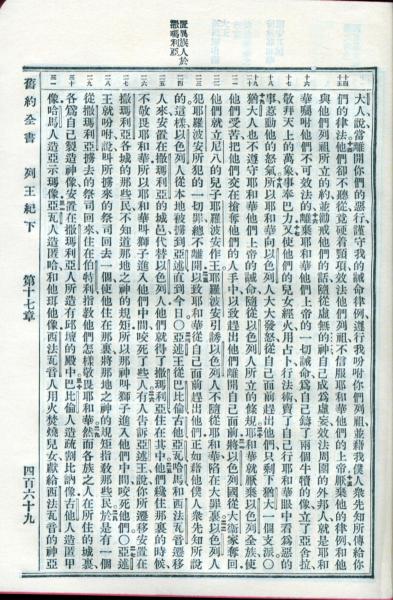 置異族人於
撒瑪利亞
大人說當離開你們的惡行謹守我的誡命律例遵行我吩咐你們列祖並藉我僕人衆先知所傳給你
們的律法他們卻不聽從竟硬着頸項效法他們列祖不信服耶和華他們的上帝厭棄他的律例和他
與他們列祖所立的約並勸戒他們的話隨從虛無的神自己成爲虛妄效法周圍的外邦人就是耶和
華囑咐他們不可效法的離棄耶和華他們上帝的一切誡命爲自己鑄了兩個牛犢的像立了亞舍拉
敬拜天上的萬象事奉巴力又使他們的兒女經火用占卜行法術賣了自己行耶和華眼中看爲惡的
事惹動他的怒氣所以耶和華向以色列人大大發怒從自己面前趕出他們只剩下猶大一個支派〇
猶大人也不遵守耶和華他們上帝的誡命隨從以色列人所立的條規耶和華就厭棄以色列全族使
他們受苦把他們交在搶奪他們的人手中以致趕出他們離開自己面前將以色列國從大衛家奪回
他們就立尼八的兒子耶羅波安作王耶羅波安引誘以色列人不隨從耶和華陷在大罪裏以色列人
犯耶羅波安所犯的一切罪總不離開以致耶和華從自己面前趕出他們正如藉他僕人衆先知所說
的這樣以色列人從本地被擄到亞述直到今日〇亞述王從巴比倫古他亞瓦哈馬和西法瓦音遷移
人來安置在撒瑪利亞的城邑代替以色列人他們就得了撒瑪利亞住在其中他們纔住那裏的時候
不敬畏耶和華所以耶和華叫獅子進入他們中間咬死了些人有人告訴亞述王說你所遷移安置在
撒瑪利亞各城的那些民不知道那地之神的規矩所以那神叫獅子進入他們中間咬死他們〇亞述
王就吩咐說叫所擄來的祭司回去一個使他住在那裏將那地之神的規矩指教那些民於是有一個
從撒瑪利亞擄去的祭司回來住在伯特利指教他們怎樣敬畏耶和華然而各族之人在所住的城裏
各爲自己製造神像安置在撒瑪利亞人所造有邱壇的殿中巴比倫人造疏割比訥像古他人造匿甲
像哈馬人造亞示瑪像亞瓦人造匿哈和他珥他像西法瓦音人用火焚燒兒女獻給西法瓦音的神亞
舊約全書 列王紀下 第十七章 四百六十九